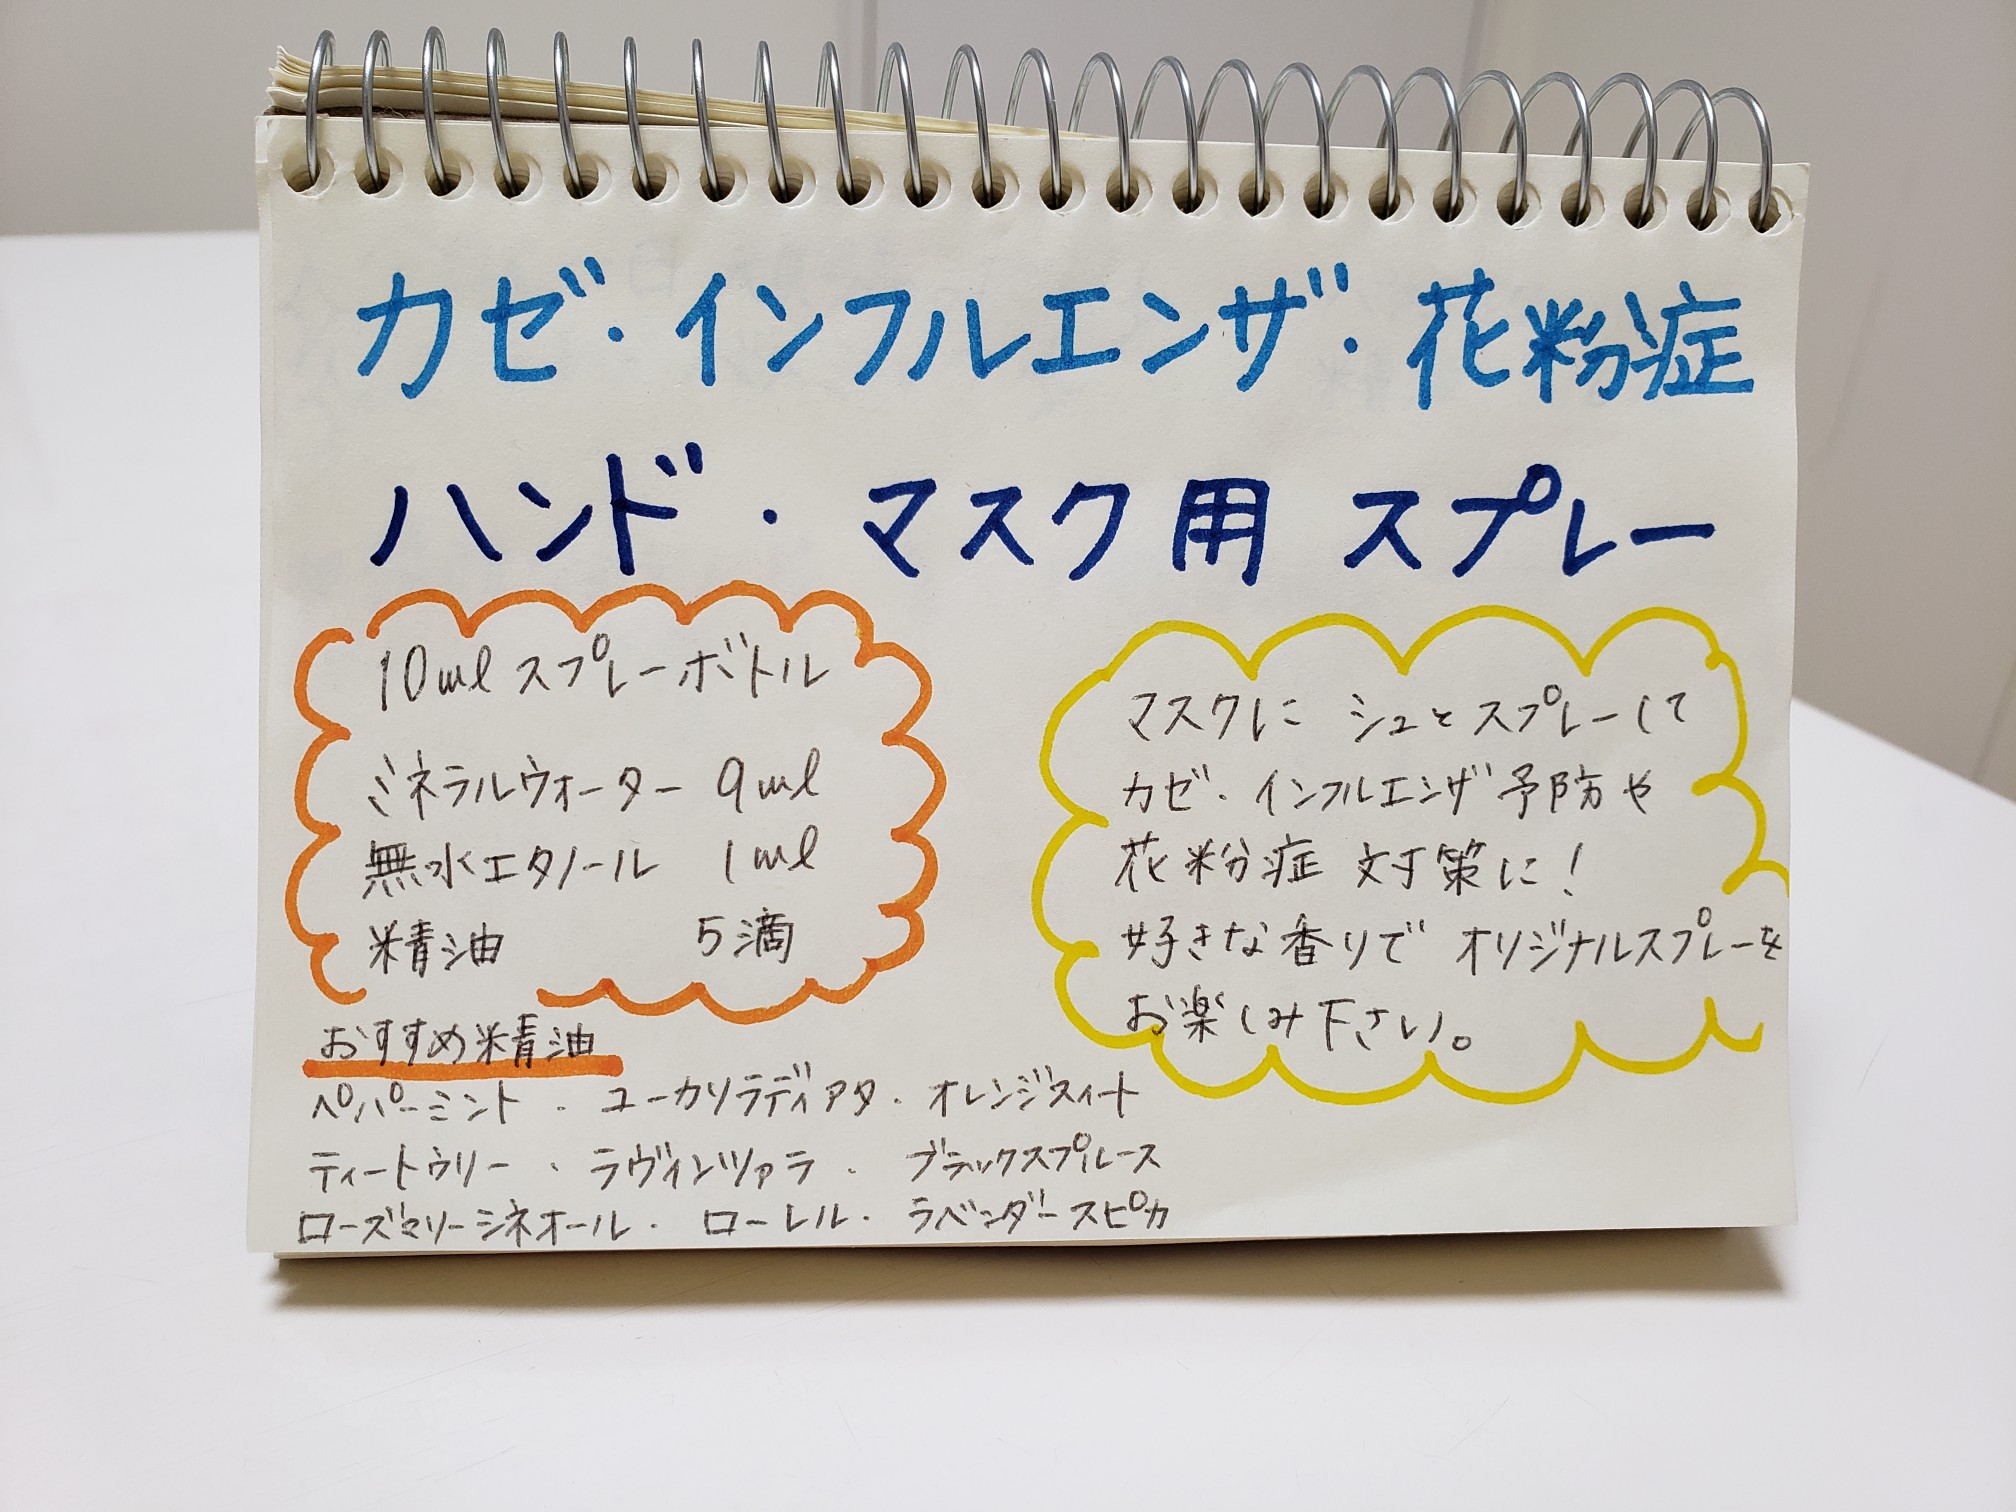 カゼ・インフルエンザ・花粉症
ハンド・マスク用 スプレー
10ml スプレーボトル
ミネラルウォーター 9ml
無水エタノール 1ml
精油 5滴
マスクに シュとスプレーして
カゼ・インフルエンザ予防や
花粉症 対策に!
好きな香りで オリジナルスプレーを
お楽しみ下さい。
おすすめ精油
ペパーミント・ユーカリラディアタ・オレンジスィート
ティートゥリー・ラヴィンツァラ・ブラックスプルース
ローズマリーシネオール・ローレル・ラベンダースピカ